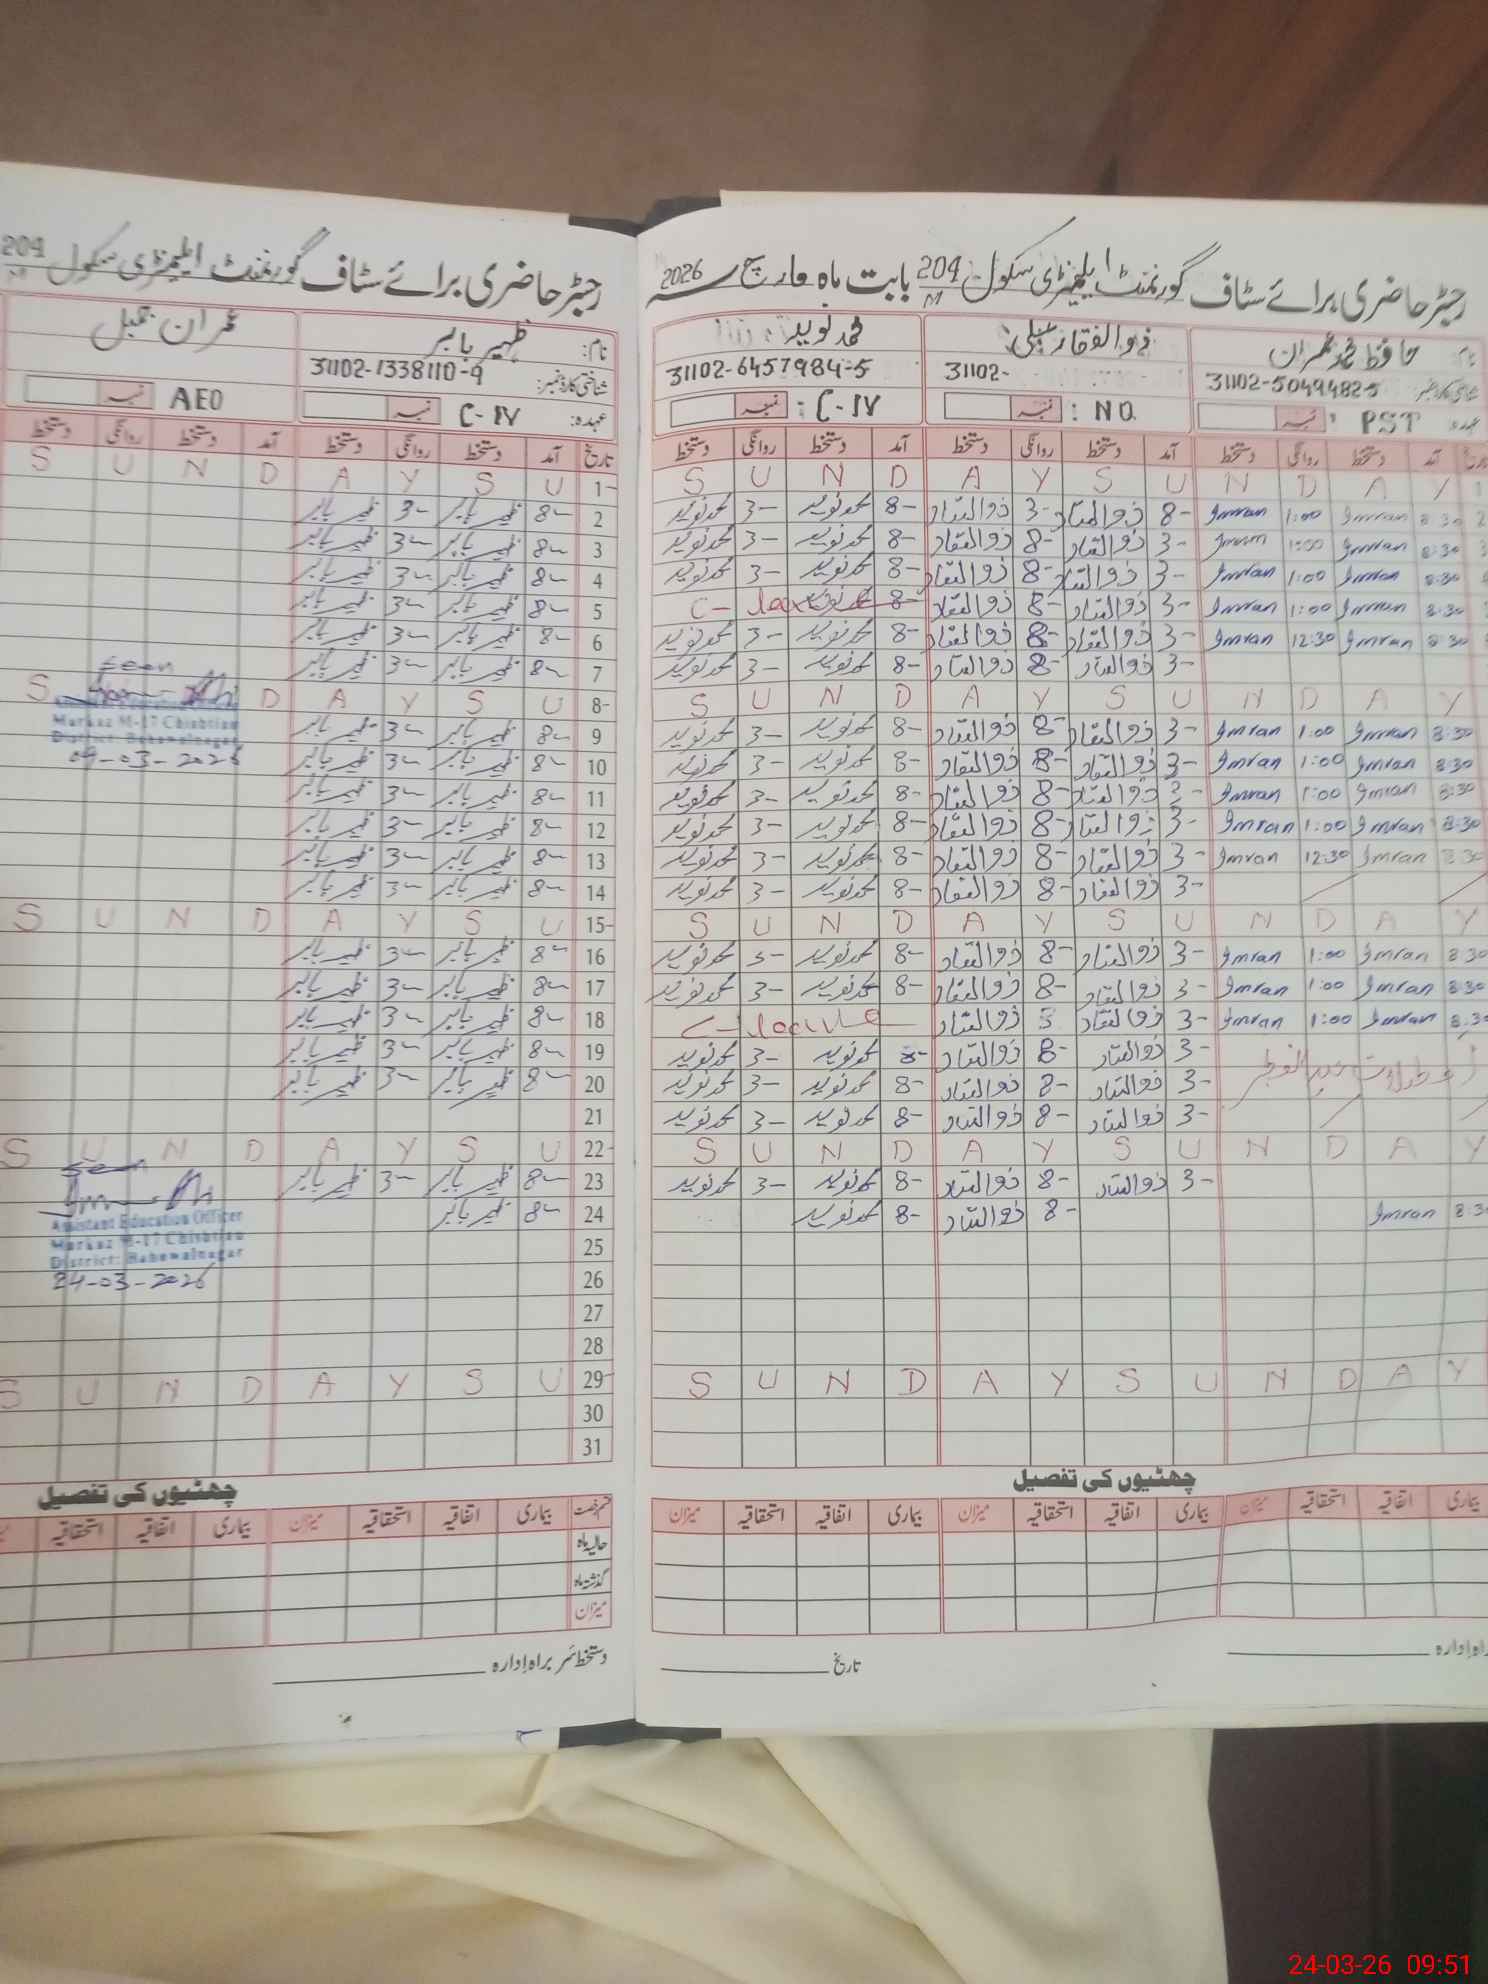 رجسٹر حاضری برائے سٹاف گورنمنٹ ایلیمنٹری سکول 204/M بابت ماہ مارچ 2026
نام: حافظ محمد عمران
ذوالفقار
محمد نوید
شناختی کارڈ نمبر: 31102-5049482-5
31102-
31102-6457984-5
عہدہ: PST
: NQ
: C-IV
تاریخ آمد دستخط روانگی دستخط آمد دستخط روانگی دستخط آمد دستخط روانگی دستخط
1 S U N D A Y S U N D A Y
2 8:30 Imran 1:00 Imran 8- ذوالفقار 3- ذوالفقار 8- محمد نوید 3- محمد نوید
3 8:30 Imran 1:00 Imran 3- ذوالفقار 8- ذوالفقار 8- محمد نوید 3- محمد نوید
4 8:30 Imran 1:00 Imran 3- ذوالفقار 8- ذوالفقار 8- محمد نوید 3- محمد نوید
8:30 Imran 1:00 Imran 3- ذوالفقار 8- ذوالفقار 8- محمد نوید C-leave
8:30 Imran 12:30 Imran 3- ذوالفقار 8- ذوالفقار 8- محمد نوید 3- محمد نوید
3- ذوالفقار 8- ذوالفقار 8- محمد نوید 3- محمد نوید
S U N D A Y S U N D A Y
8:30 Imran 1:00 Imran 3- ذوالفقار 8- ذوالفقار 8- محمد نوید 3- محمد نوید
8:30 Imran 1:00 Imran 3- ذوالفقار 8- ذوالفقار 8- محمد نوید 3- محمد نوید
8:30 Imran 1:00 Imran 3- ذوالفقار 8- ذوالفقار 8- محمد نوید 3- محمد نوید
8:30 Imran 1:00 Imran 3- ذوالفقار 8- ذوالفقار 8- محمد نوید 3- محمد نوید
8:30 Imran 12:30 Imran 3- ذوالفقار 8- ذوالفقار 8- محمد نوید 3- محمد نوید
3- ذوالفقار 8- ذوالفقار 8- محمد نوید 3- محمد نوید
S U N D A Y S U N D A Y
8:30 Imran 1:00 Imran 3- ذوالفقار 8- ذوالفقار 8- محمد نوید 3- محمد نوید
8:30 Imran 1:00 Imran 3- ذوالفقار 8- ذوالفقار 8- محمد نوید 3- محمد نوید
8:30 Imran 1:00 Imran 3- ذوالفقار ذوالفقار C-leave
عیدالفطر 3- ذوالفقار 8- ذوالفقار 8- محمد نوید 3- محمد نوید
3- ذوالفقار 8- ذوالفقار 8- محمد نوید 3- محمد نوید
3- ذوالفقار 8- ذوالفقار 8- محمد نوید 3- محمد نوید
S U N D A Y S U N D A Y
3- ذوالفقار 8- ذوالفقار 8- محمد نوید 3- محمد نوید
8:30 Imran 8- ذوالفقار 8- محمد نوید
S U N D A Y S U N D A Y
چھٹیوں کی تفصیل
بیماری اتفاقیہ استحقاقیہ میزان بیماری اتفاقیہ استحقاقیہ میزان بیماری اتفاقیہ استحقاقیہ میزان
راہ ادارہ
تاریخ
رجسٹر حاضری برائے سٹاف گورنمنٹ ایلیمنٹری سکول 204/M
نام: ظہیر بابر
عمران جمیل
شناختی کارڈ نمبر: 31102-1338110-9
عہدہ: C-IV نمبر
AEO نمبر
تاریخ آمد دستخط روانگی دستخط آمد دستخط روانگی دستخط
1 S U N D A Y S U
2 8- ظہیر بابر 3- ظہیر بابر
3 8- ظہیر بابر 3- ظہیر بابر
4 8- ظہیر بابر 3- ظہیر بابر
5 8- ظہیر بابر 3- ظہیر بابر
6 8- ظہیر بابر 3- ظہیر بابر
7 8- ظہیر بابر 3- ظہیر بابر
Seen
8 S D A Y S U
Assistant Education Officer
Markaz M-17 Chishtian
District: Bahawalnagar
09-03-2026
9 8- ظہیر بابر 3- ظہیر بابر
10 8- ظہیر بابر 3- ظہیر بابر
11 8- ظہیر بابر 3- ظہیر بابر
12 8- ظہیر بابر 3- ظہیر بابر
13 8- ظہیر بابر 3- ظہیر بابر
14 8- ظہیر بابر 3- ظہیر بابر
15 S U N D A Y S U
16 8- ظہیر بابر 3- ظہیر بابر
17 8- ظہیر بابر 3- ظہیر بابر
18 8- ظہیر بابر 3- ظہیر بابر
19 8- ظہیر بابر 3- ظہیر بابر
20 8- ظہیر بابر 3- ظہیر بابر
21
22 S U N D A Y S U
Seen
23 8- ظہیر بابر 3- ظہیر بابر
24 8- ظہیر بابر
Assistant Education Officer
Markaz M-17 Chishtian
District: Bahawalnagar
24-03-2026
25
26
27
28
29 S U N D A Y S U
30
31
چھٹیوں کی تفصیل
قسم رخصت بیماری اتفاقیہ استحقاقیہ میزان بیماری اتفاقیہ استحقاقیہ
حالیہ ماہ
گذشتہ ماہ
میزان
دستخط سربراہ ادارہ
24-03-26 09:51